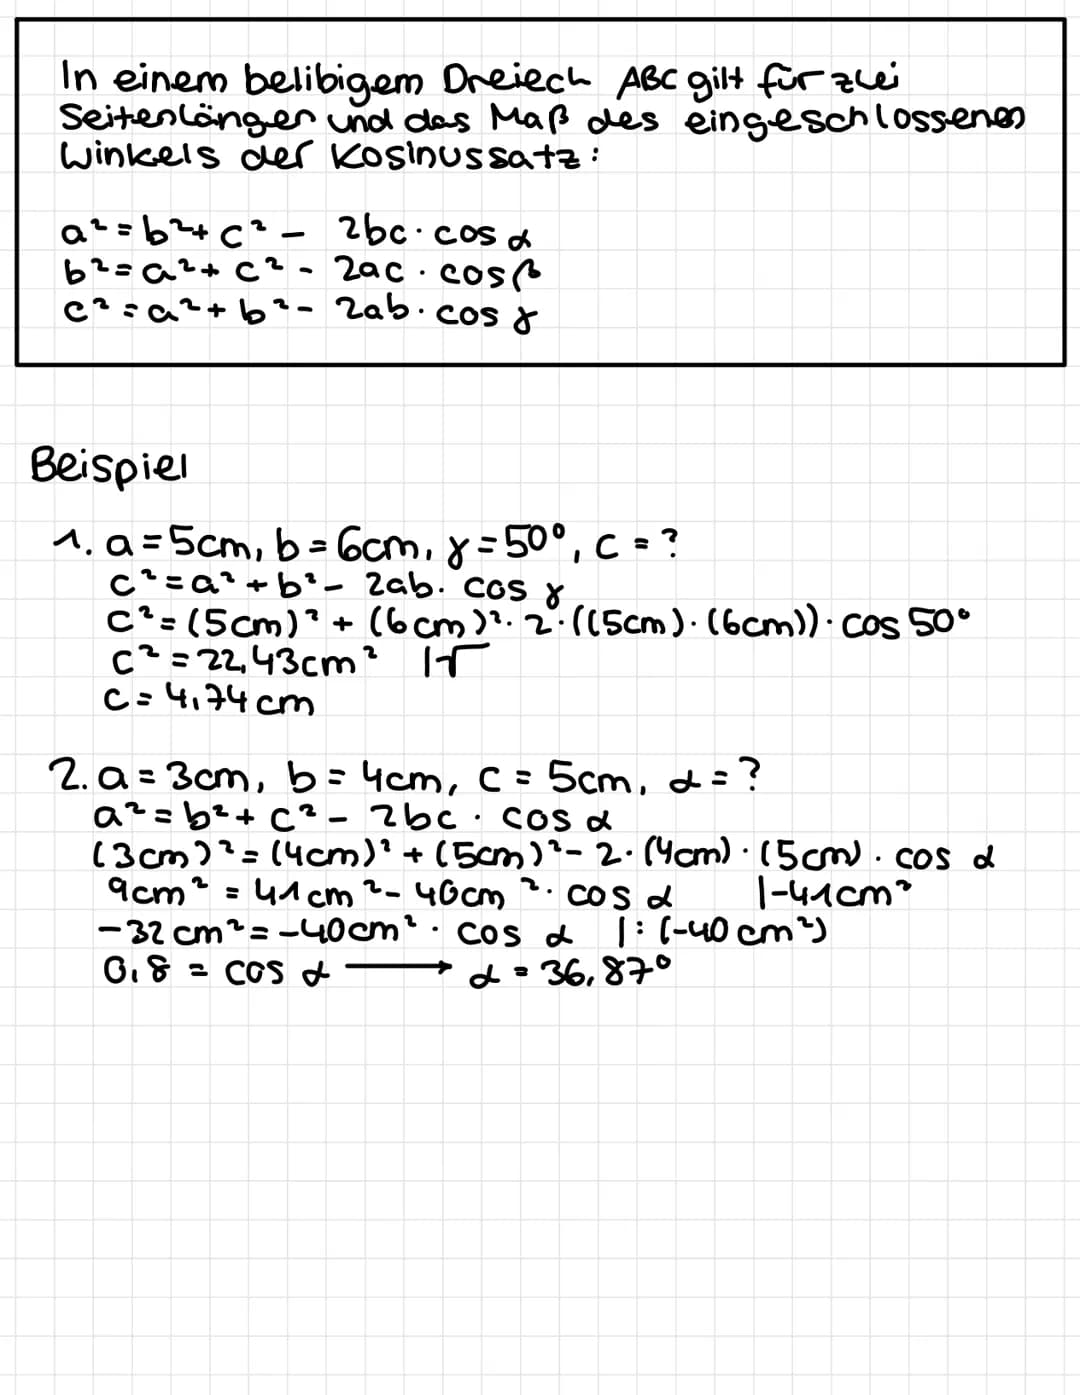 In einem belibigem Dreiech ABC gilt für zwei
Seitenlängen und das Maß des eingeschlossenen
Winkels der Kosinussatz:
a² = b² + c² - 2bc · cos α
b² = a² + c² - 2ac · cos β
c² = a² + b² - 2ab · cos γ
Beispiel
1. a = 5cm, b = 6cm, γ = 50°, c = ?
c² = a² + b² - 2ab · cos γ
c² = (5cm)² + (6cm)² · 2 · ((5cm) · (6cm)) · cos 50°
c² = 22,43cm² |√
c = 4,74 cm
2. a = 3cm, b = 4cm, c = 5cm, α = ?
a² = b² + c² - 2bc · cos α
(3cm)² = (4cm)² + (5cm)² - 2 · (4cm) · (5cm) · cos α
9cm² = 41cm² - 40cm² · cos α |-41cm²
-32cm² = -40cm² · cos α |: (-40cm²)
0,8 = cos α ⟶ α = 36,87°